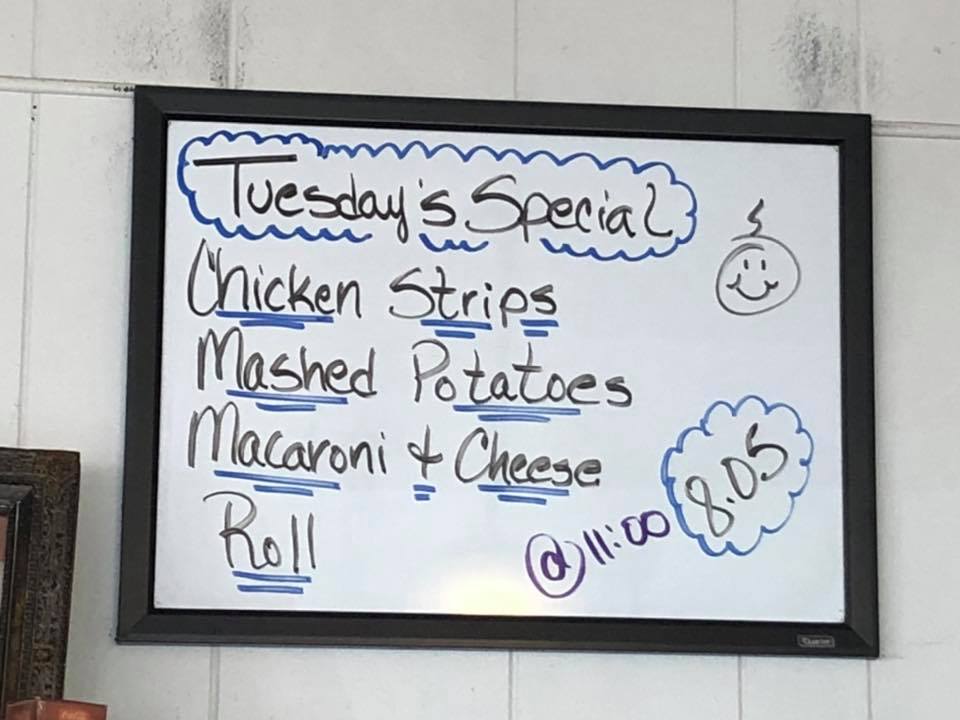 Tuesday's Special
Chicken Strips
Mashed Potatoes
Macaroni & Cheese
Roll
@ 11:00
8.05